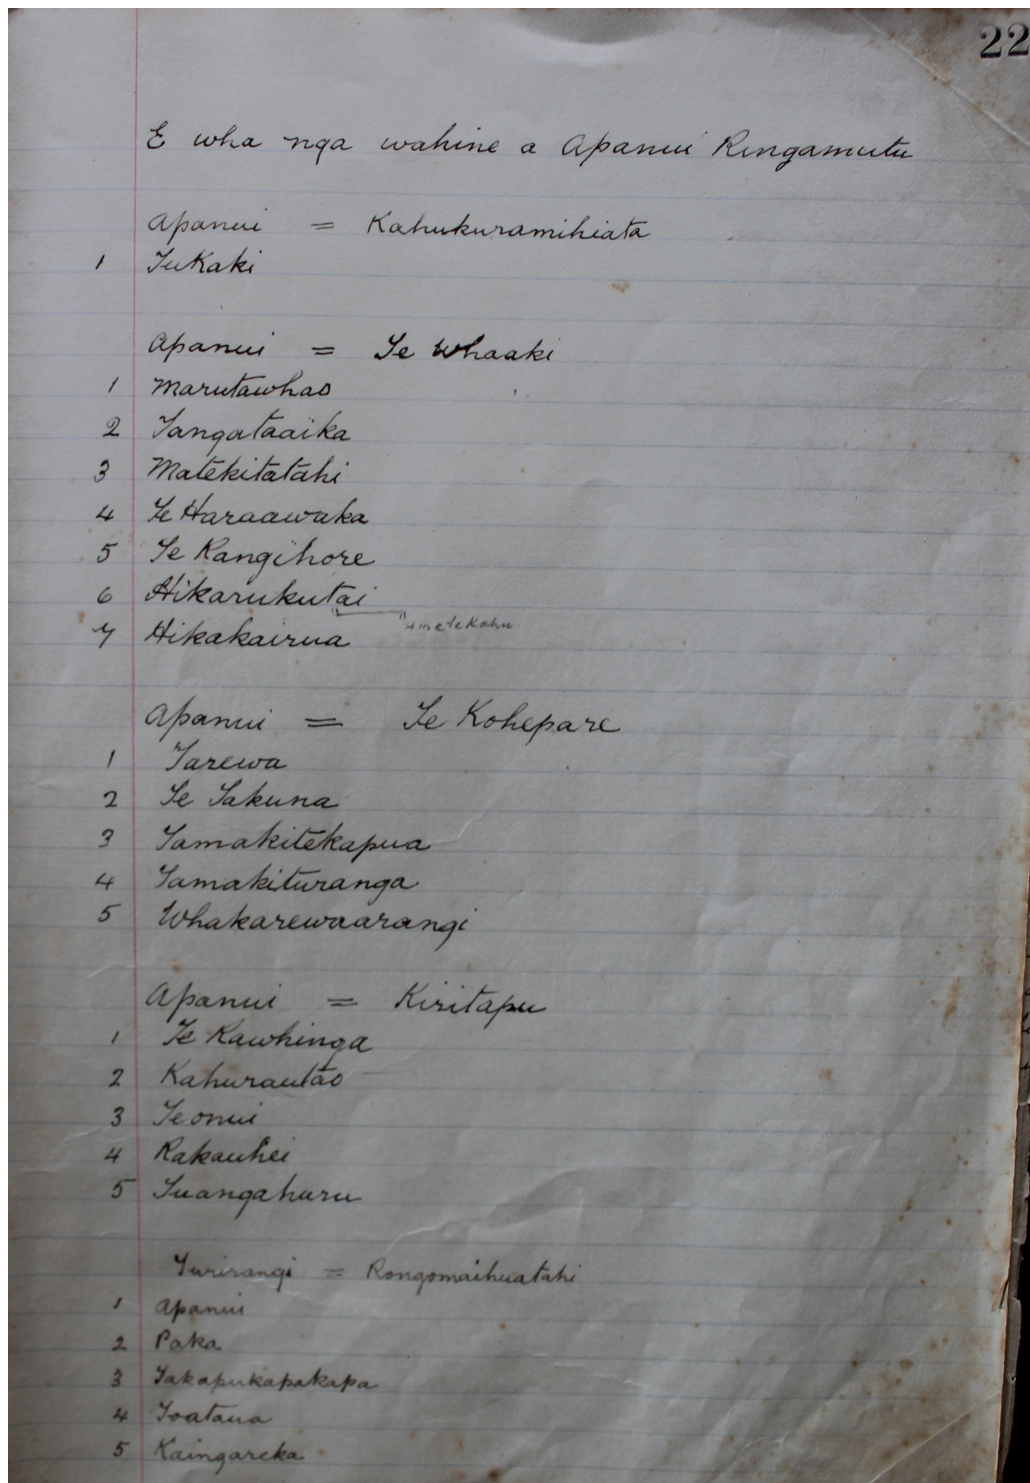 22
E wha nga wahine a Apanui Ringamutu
Apanui = Kahukuramihiata
1 Tukaki
Apanui = Te Whaaki
1 Marutawhao
2 Tangataaika
3 Matekitatahi
4 Te Haraawaka
5 Te Rangihore
6 Hikarukutai
7 Hikakairua
Apanui = Te Kohepare
1 Tarewa
2 Te Takuna
3 Tamakitekapua
4 Tamakituranga
5 Whakarewaarangi
Apanui = Kiritapu
1 Te Kawhinga
2 Kahurautao
3 Teonui
4 Rakauhei
5 Tuangahuru
Turirangi = Rongomaihuatahi
1 Apanui
2 Paka
3 Takapukapakapa
4 Toataua
5 Kaingareka